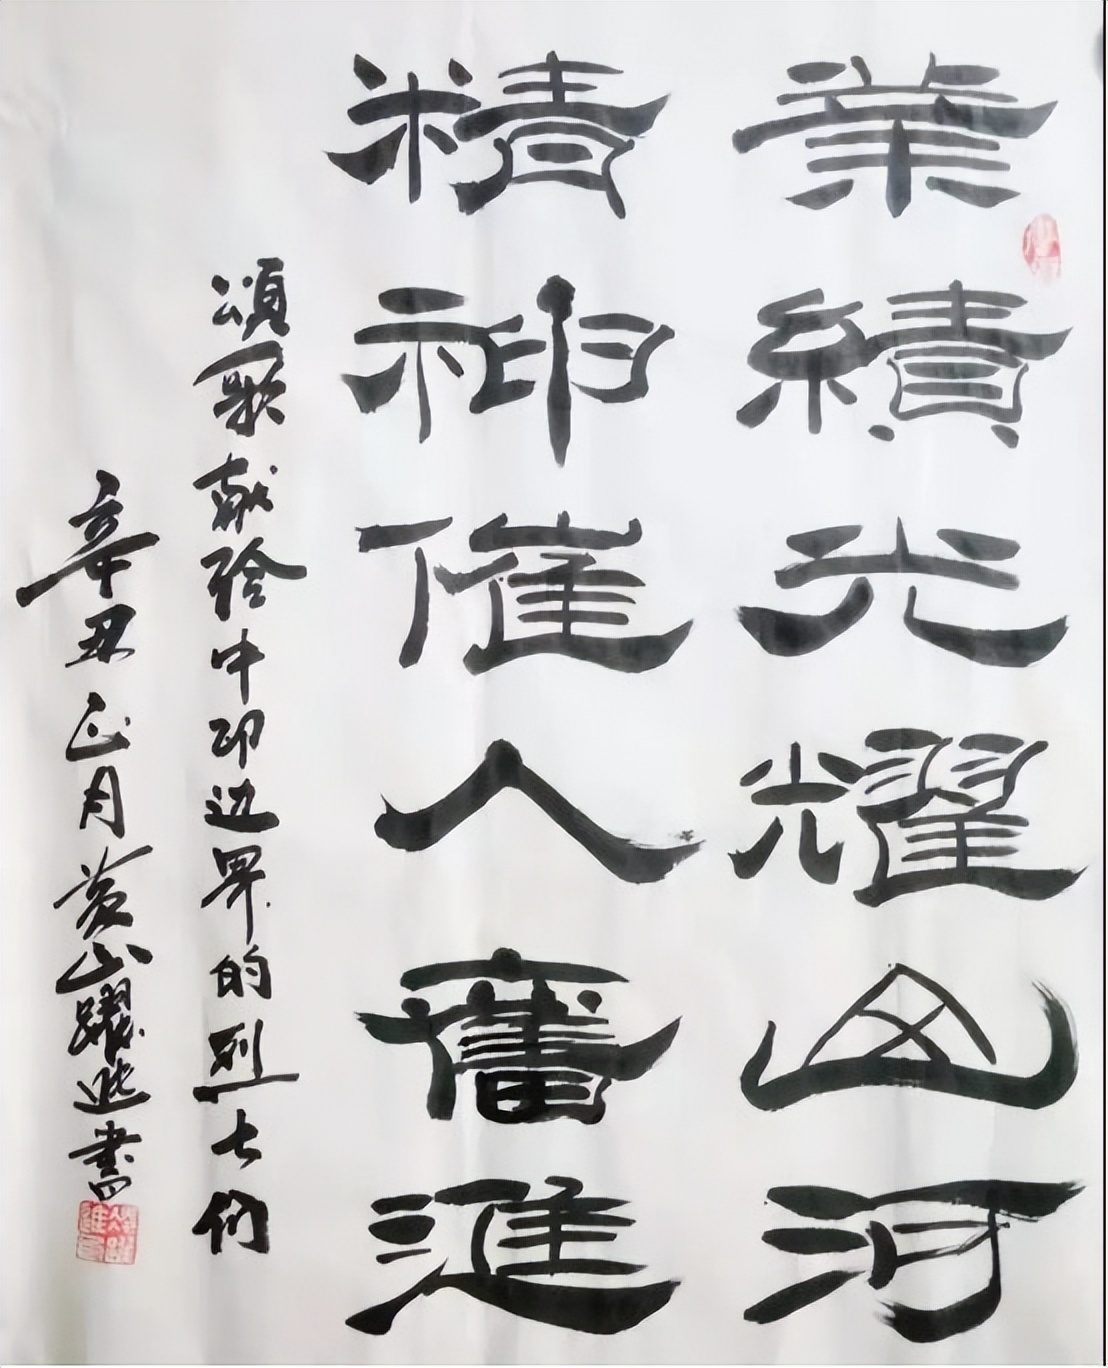 業績光耀山河
精神催人奮進
頌歌献给中印边界的烈士们
辛丑正月黄山躍进書